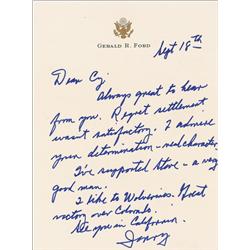 GERALD R. FORD
Sept 18th
Dear Cy:
Always great to hear
from you. Regret settlement
wasn't satisfactory. I admire
your determination - and character.
I've supported Steve - a very
good man.
I like to Wolverines. Great
victory over Colorado.
See you in California.
Jerry